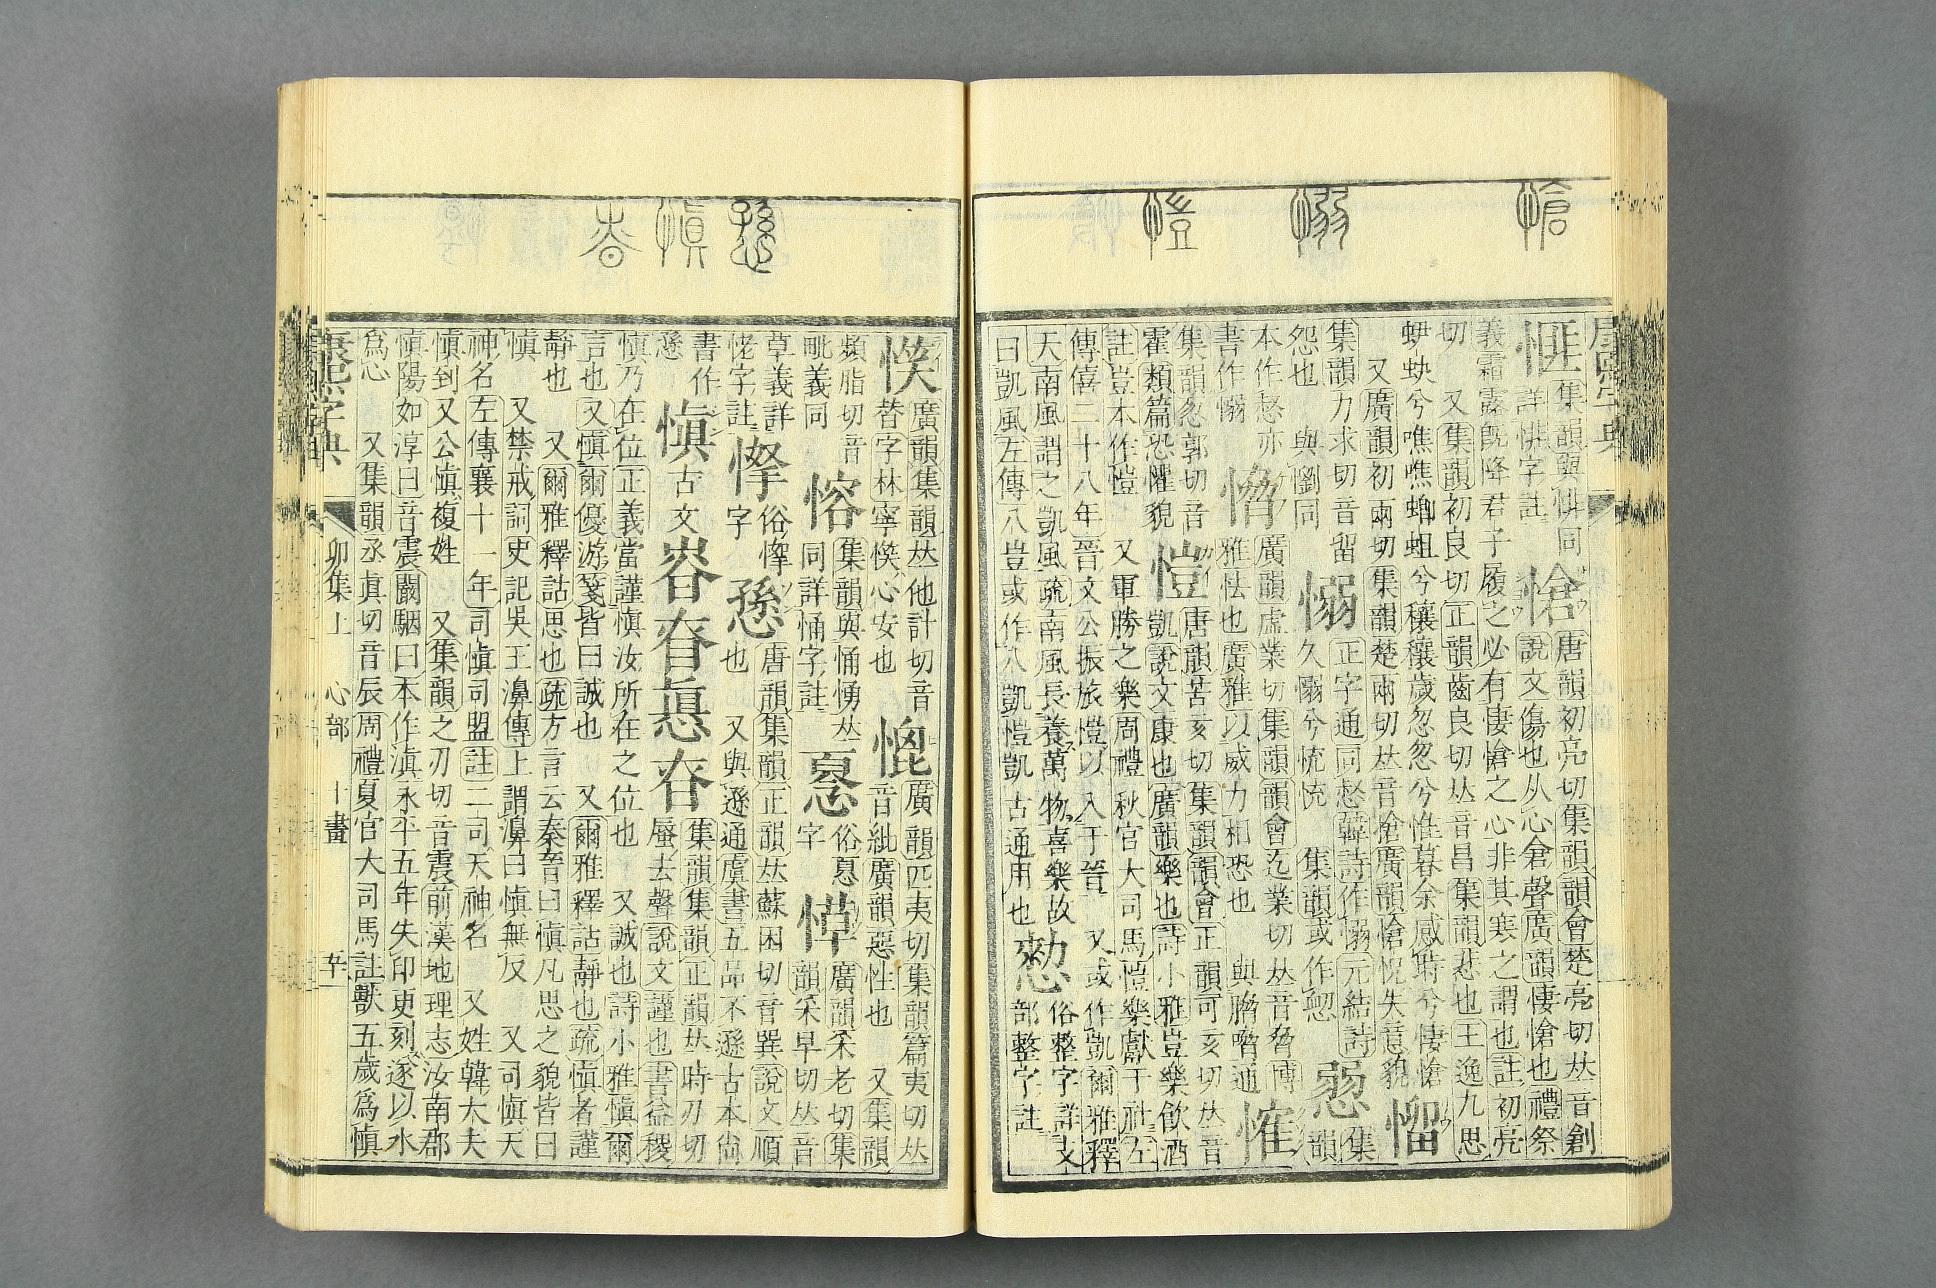 愴 愵 愷
字典
集韻與悱同 愴 唐韻初亮切集韻韻會楚亮切𠀤音創
詳悱字註 說文傷也从心倉聲廣韻悽愴也禮祭
義霜露旣降君子履之必有悽愴之心非其寒之謂也註初亮
切 又集韻初良切正韻齒良切𠀤音昌集韻悲也王逸九思
蚗兮噍噍蝍蛆兮穰穰歲忽忽兮惟暮余感時兮悽愴
又廣韻初兩切集韻楚兩切𠀤音搶廣韻愴怳失意貌
集韻力求切音留 愵 正字通同惄韓詩作愵元結詩 集
怨也 與懰同 久愵兮怳怳 集韻或作惄 韻
本作惄亦 愶 廣韻虛業切集韻韻會迄業切𠀤音脅博
書作愵 雅怯也廣雅以威力相恐也 與脅嗋通
集韻忽郭切音 愷 唐韻苦亥切集韻韻會正韻可亥切𠀤音
霍類篇恐懼貌 凱說文康也廣韻樂也詩小雅豈樂飮酒
註豈本作愷 又軍勝之樂周禮秋官大司馬愷樂獻于社左
傳僖二十八年晉文公振旅愷以入于晉 又或作凱爾雅釋
天南風謂之凱風疏南風長養萬物喜樂故 俗整字詳攴
曰凱風左傳八豈或作八凱愷凱古通用也 部整字註
愻 愼 昚
廣韻集韻𠀤他計切音 廣韻匹夷切集韻篇夷切𠀤
替字林寧心安也 音紕廣韻惡性也 又集韻
頻脂切音 愹 集韻與恿慂𠀤 俗息 愺 廣韻采老切集
毗義同 同詳恿字註 字 韻采早切𠀤音
草義詳 俗 愻 唐韻集韻正韻𠀤蘇困切音巽說文順
恅字註 字 也 又與遜通虞書五品不遜古本尙
書作 愼 古文 昚 集韻集韻正韻𠀤時刃切
愻 蜃去聲說文謹也書益稷
愼乃在位正義當謹愼汝所在之位也 又誠也詩小雅愼爾
言也 又愼爾優游箋皆曰誠也 又爾雅釋詁靜也疏愼者謹
靜也 又爾雅釋詁思也疏方言云秦晉曰愼凡思之貌皆曰
愼 又禁戒詞史記吳王濞傳上謂濞曰愼無反 又司愼天
神名左傳襄十一年司愼司盟註二司天神名 又姓韓大夫
愼到 又公愼複姓 又集韻之刃切音震前漢地理志汝南郡
愼陽如淳曰音震闞駰曰本作滇永平五年失印更刻遂以水
爲心 又集韻丞眞切音辰周禮夏官大司馬註獸五歲爲愼
康熙字典 卯集上 心部 十畫